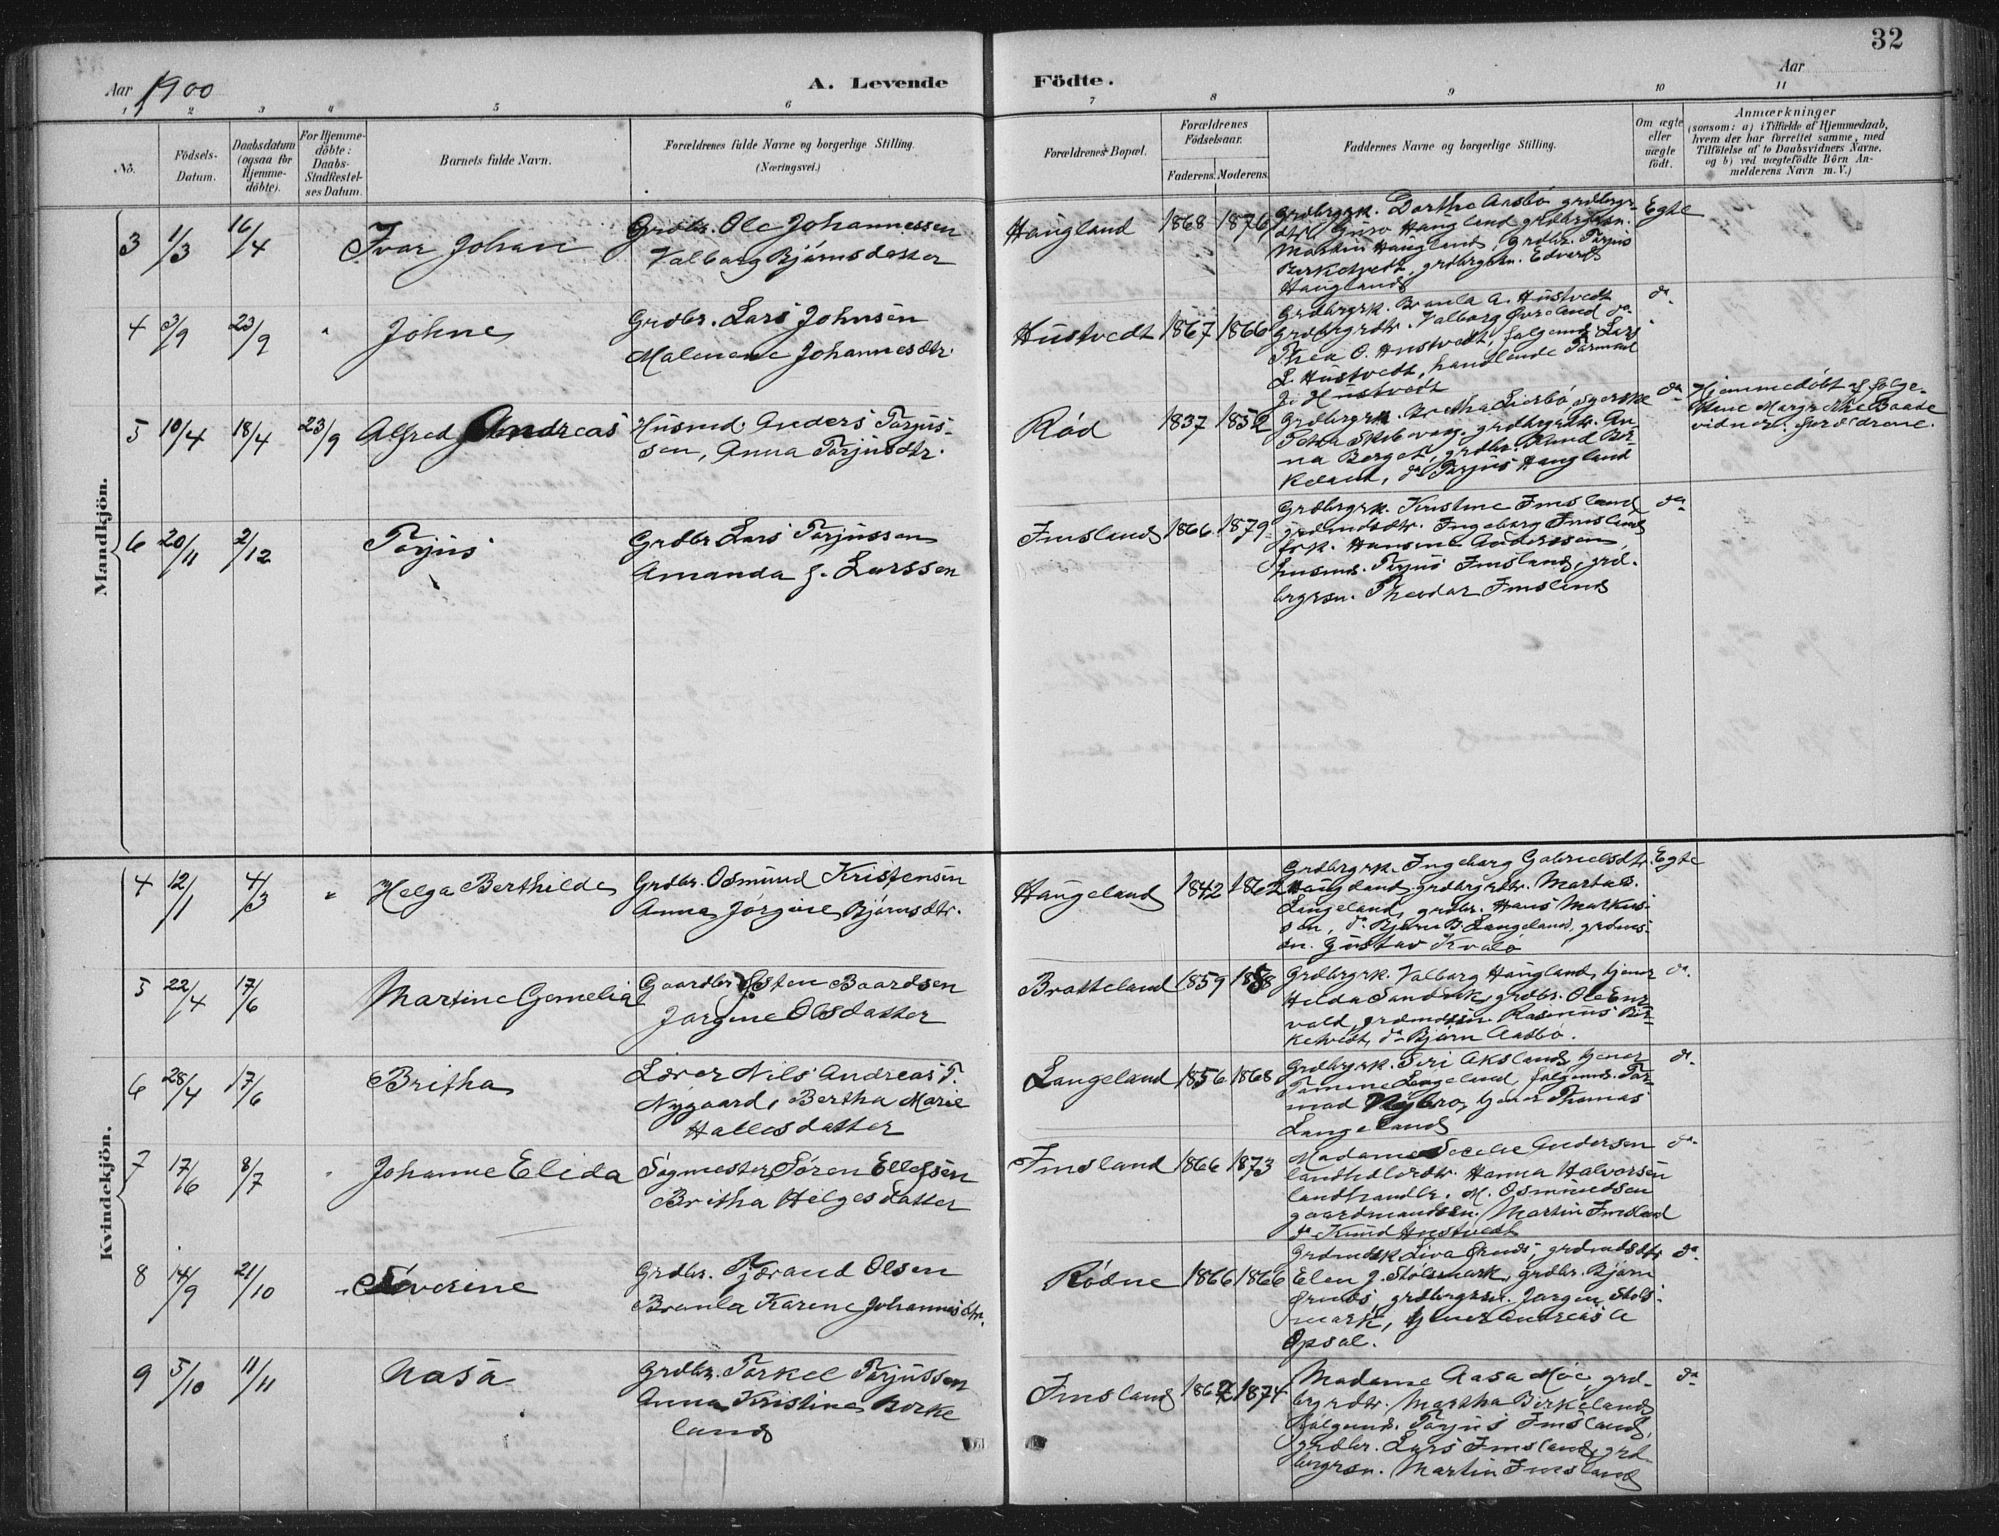 32
Aar 1900
A. Levende Födte.
Aar
1 2 3 4 5 6 7 8 9 10 11
No.
Födsels-Datum.
Daabsdatum (ogsaa for Hjemme-döbte).
For Hjemme-döbte: Daabs-Stadfestel-ses Datum.
Barnets fulde Navn.
Forældrenes fulde Navne og borgerlige Stilling.
(Næringsvei.)
Forældrenes Bopæl.
Forældrenes Födselsaar.
Faderens. Moderens.
Faddernes Navne og borgerlige Stilling.
Om ægte eller uægte födt.
Anmærkninger
(saasom: a) i Tilfælde af Hjemmedaab,
hvem der har forrettet samme, med
Tilföielse af to Daabsvidners Navne,
og b) ved uægtefödte Börn An-
melderens Navn m. V.)
Mandkjön.
3 1/3 16/4 Ivar Johan
Grdbr. Ole Johannessen
Valborg Bjørnsdatter
Haugland 1868 1876
Grdbrgrk. Dorthe Aasbø, grdbrgr-
dtr. Guro Haugland, grdbrgrsn.
Martin Haugland, grdbr. Torjus
Birketvedt, grdbrgrsn. Edvard
Haugland
Egte
4 3/9 23/9 " Johne
Grdbr. Lars Johnsen
Malenene Johannesdtr.
Hustvedt 1867 1866
Grdbrgrk. Braula A. Hustvedt
grdbrgrdtr. Valborg Øvreland, do
Thea O. Hustvedt, falgemd. Lars
L. Hustvedt, handlende Tormod
J. Hustvedt
do
5 10/4 18/4 23/9 Alfred Andreas
Husmd. Anders Torjus-
sen, Anna Torjusdtr.
Rød 1837 1852
Grdbrgrk. Bretha Lierbø, syerske
Petra Skibevaag, grdbrgrdtr. An-
na Berget, grdbr. Knud Bir-
keland, do Torjus Haugland
do
Hjemmedøbt af følge-
Kone Margrethe Baade
vidner: forældrene.
6 20/11 2/12 Torjus
Grdbr. Lars Torjussen
Amanda f. Larssen
Imsland 1866 1879
Grdbrgrk. Kristine Imsland
grdmdsdtr. Ingeborg Imsland
frk. Hansine Anderssen
husmd. Torjus Imsland, grd-
brgrsn. Theodor Imsland
do
Kvindekjön.
4 12/1 4/3 " Helga Berthilde
Grdbr. Osmund Kristensen
Anna Jørgine Bjørnsdtr.
Haugeland 1842 1862
Grdbrgrk. Ingeborg Gabrielsdtr.
Haugland, grdbrgrdtr. Marta S.
Langeland, grdbr. Hans Markus-
sen, do Bjørn B. Langeland, grdmds-
sn. Gustav Kvalø
Egte
5 22/4 17/6 Martine Gemelia
Gaardbr. Østen Baardsen
Jørgine Olsdatter
Bratteland 1859 1858
Grdbrgrk. Valborg Haugland, tjener
Helda Sandvik, grdbr. Ole Eny-
vold, grdmdsn. Rasmus Bir-
ketvedt, do Bjørn Aasbø.
do
6 28/4 17/6 Britha
Lærer Nils Andreas T.
Nygaard, Bertha Marie
Hallesdatter
Langeland 1856 1868
Grdbrgrk. Siri Aksland, tjener
Tomine Langeland, falgemd. Tor-
mod Nybro, tjener Thomas
Langeland
do
7 17/6 8/7 " Johanne Elida
Sagmester Søren Ellefsen
Britha Helgesdatter
Imsland 1866 1873
Madame Secelie Andersen
landhdlerdtr. Hanna Halvorsen
landhandlr. M. Osmundsen
gaardmandssn. Martin Imsland
do Knud Hustvedt
do
8 14/9 21/10 " Severine
Grdbr. Tjerand Olsen
Braula Karene Johannesdtr.
Rødne 1866 1866
Grdmdsk. Siva Ornes, grdmdsdtr.
Elen J. Stølsmark, grdbr. Bjørn
Ornes, grdbrgrsn. Jørgen Støls-
mark, tjener Andreas A
Opsal.
do
9 5/10 11/11 Aasa
Grdbr. Torkel Torjussen
Anna Kristine Birke
land
Imsland 1867 1874
Madame Aasa Moe, grd-
brgrdtr. Martha Birkeland,
falgemd. Torjus Imsland,
grdbr. Lars Imsland, grd-
brgrsn. Martin Imsland
do